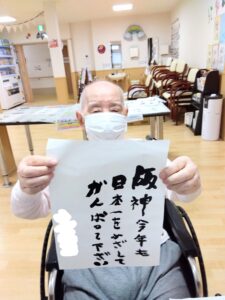 阪神今年も
日本一をめざして
がんばって下さい